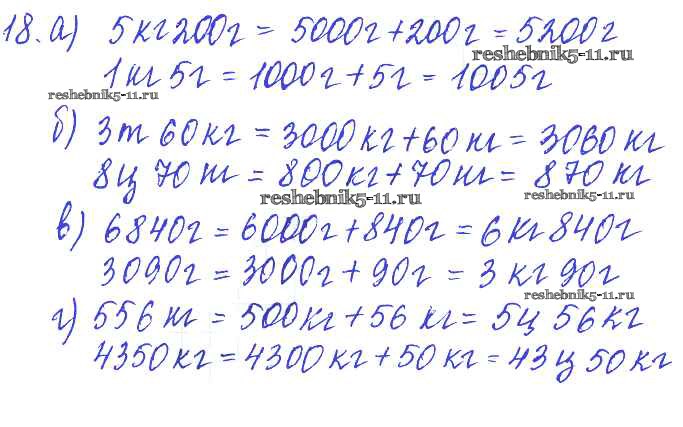 18. а) 5 кг 200 г = 5000 г + 200 г = 5200 г
reshebnik5-11.ru
1 кг 5 г = 1000 г + 5 г = 1005 г
reshebnik5-11.ru
б) 3 т 60 кг = 3000 кг + 60 кг = 3060 кг
8 ц 70 кг = 800 кг + 70 кг = 870 кг
reshebnik5-11.ru
reshebnik5-11.ru
в) 6840 г = 6000 г + 840 г = 6 кг 840 г
3090 г = 3000 г + 90 г = 3 кг 90 г
reshebnik5-11.ru
г) 556 кг = 500 кг + 56 кг = 5 ц 56 кг
4350 кг = 4300 кг + 50 кг = 43 ц 50 кг